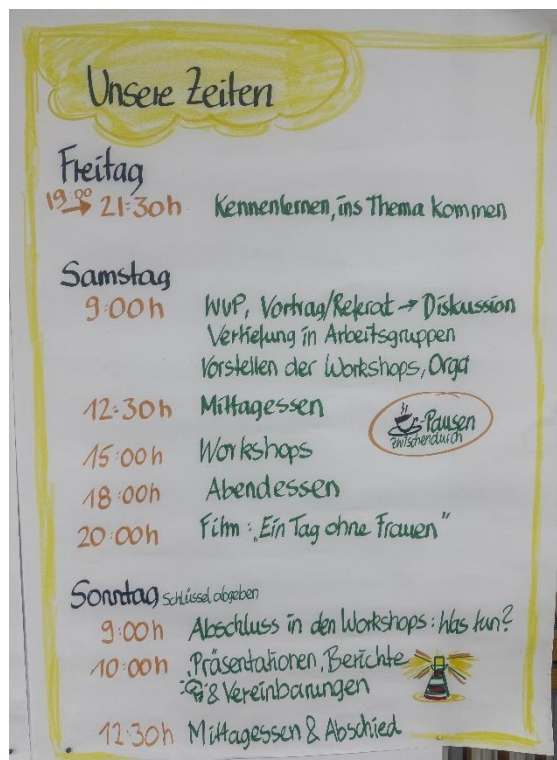 Unsere Zeiten
Freitag
19:00 → 21:30h Kennenlernen, ins Thema kommen
Samstag
9:00h WUP, Vortrag/Referat → Diskussion
Vertiefung in Arbeitsgruppen
Vorstellen der Workshops, Orga
12:30h Mittagessen
-Pausen
zwischendurch
15:00h Workshops
18:00h Abendessen
20:00h Film: „Ein Tag ohne Frauen"
Sonntag Schlüssel abgeben
9:00h Abschluss in den Workshops: Was tun?
10:00h Präsentationen, Berichte
& Vereinbarungen
12:30h Mittagessen & Abschied